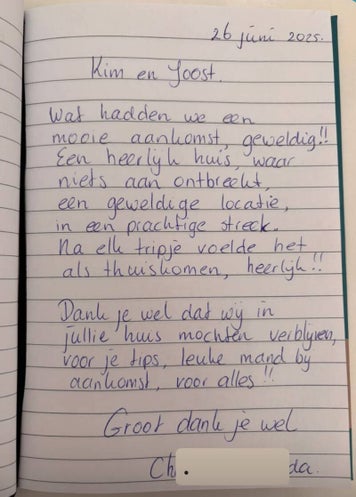 26 juni 2025.
Kim en Joost.
Wat hadden we een
mooie aankomst, geweldig!!
Een heerlijk huis, waar
niets aan ontbreekt,
een geweldige locatie,
in een prachtige streek.
Na elk tripje voelde het
als thuiskomen, heerlijk!!
Dank je wel dat wij in
jullie huis mochten verblijven,
voor je tips, leuke mand by
aankomst, voor alles!!
Groot dank je wel
Ch da.